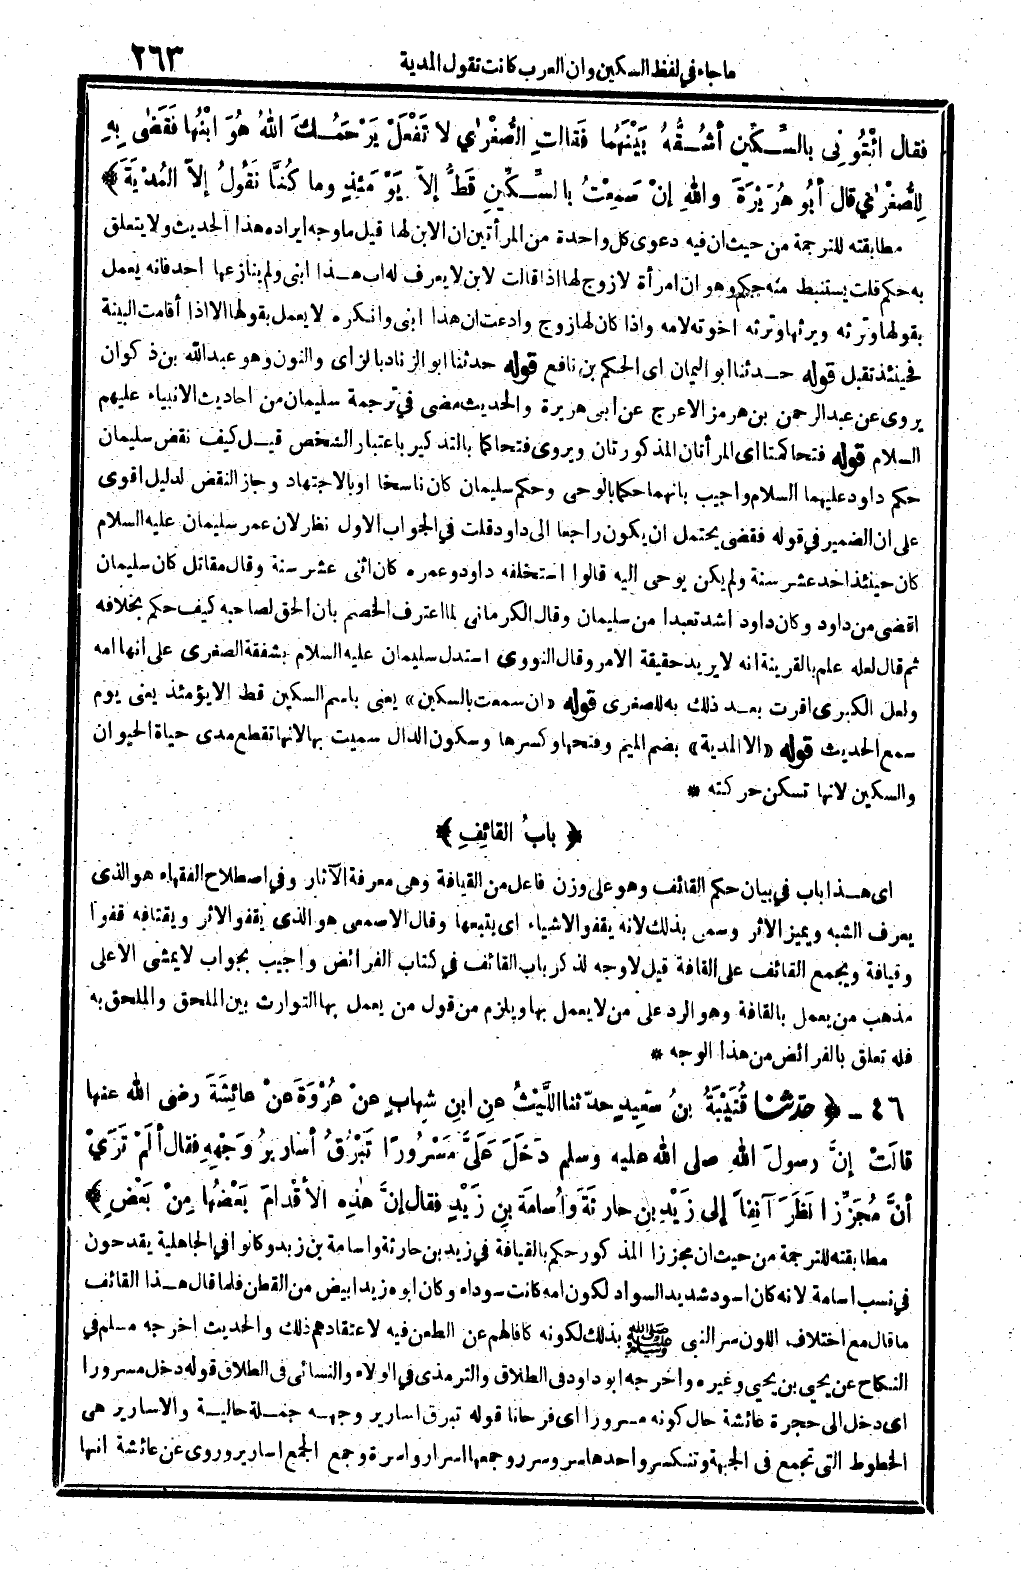 ماجاء في لفظ السكين وان العرب كانت تقول المدية
٢٦٣
فقال ائْتُونِى بالسِّكِّينِ أشُقُّهُ بَيْنَهُما فَقالتِ الصُّغْرٰي لا تَفْعَلْ يَرْحَمُكَ اللهُ هُوَ ابْنُها فَقَضٰى بِهِ
لِلصُّغْرٰى قال أبُو هُرَيْرَةَ واللهِ إنْ سَمِعْتُ بالسِّكِّينِ قَطُّ إلاَّ يَوْمَئِذٍ وما كُنَّا نَقُولُ إلاَّ المُدْيَةَ ﴾
مطابقته للترجمة من حيث ان فيه دعوى كل واحدة من المرأتين ان الابن لها قيل ما وجه ايراده هذا الحديث ولا يتعلق
به حكم قلت يستنبط منه حكم وهو ان امرأة لا زوج لها اذا قالت لابن لا يعرف له اب هذا ابنى ولم ينازعها احد فانه يعمل
بقولها وترثه ويرثها وترثه اخوته لامه واذا كان لها زوج وادعت ان هذا ابنى وانكره لا يعمل بقولها الا اذا أقامت البينة
فحينئذ تقبل قوله حدثنا ابو اليمان اى الحكم بن نافع قوله حدثنا ابو الزناد بالزاى والنون وهو عبد الله بن ذكوان
يروى عن عبد الرحمن بن هرمز الاعرج عن ابى هريرة والحديث مضى في ترجمة سليمان من احاديث الانبياء عليهم
السلام قوله فتحاكمتا اى المرأتان المذكورتان ويروى فتحاكما بالتذكير باعتبار الشخص قيل كيف نقض سليمان
حكم داود عليهما السلام واجيب بانهما حكما بالوحى وحكم سليمان كان ناسخا او بالاجتهاد وجاز النقض لدليل اقوى
على ان الضمير في قوله فقضى يحتمل ان يكون راجعا الى داود قلت في الجواب الاول نظر لان عمر سليمان عليه السلام
كان حينئذ احد عشر سنة ولم يكن يوحى اليه قالوا استخلفه داود وعمره كان اثنى عشر سنة وقال مقاتل كان سليمان
اقضى من داود وكان داود اشد تعبدا من سليمان وقال الكرمانى لما اعترف الخصم بان الحق لصاحبه كيف حكم بخلافه
ثم قال لعله علم بالقرينة انه لا يريد حقيقة الامر وقال النووى استدل سليمان عليه السلام بشفقة الصغرى على انها امه
ولعل الكبرى اقرت بعد ذلك به للصغرى قوله «ان سمعت بالسكين» يعنى باسم السكين قط الا يومئذ يعنى يوم
سمع الحديث قوله «الا المدية» بضم الميم وفتحها وكسرها وسكون الدال سميت بها لانها تقطع مدى حياة الحيوان
والسكين لانها تسكن حركته *
﴿ بابُ القائِفِ ﴾
اى هذا باب في بيان حكم القائف وهو على وزن فاعل من القيافة وهى معرفة الآثار وفي اصطلاح الفقهاء هو الذى
يعرف الشبه ويميز الاثر وسمى بذلك لانه يقفو الاشياء اى يتبعها وقال الاصمعى هو الذى يقفو الاثر ويقتافه قفوا
وقيافة ويجمع القائف على القافة قيل لا وجه لذكر باب القائف في كتاب الفرائض واجيب بجواب لا يمشى الا على
مذهب من يعمل بالقافة وهو الرد على من لا يعمل بها ويلزم من قول من يعمل بها التوارث بين الملحق والملحق به
فله تعلق بالفرائض من هذا الوجه *
٤٦ ـ ﴿ حدّثنا قُتَيْبَةُ بنُ سَعِيدٍ حدّثنا اللَّيْثُ عنِ ابنِ شِهابٍ عنْ عُرْوَةَ عنْ عائِشَةَ رضى الله عنها
قالَتْ إنَّ رسولَ اللهِ صلى الله عليه وسلم دَخَلَ عَلَيَّ مَسْرُورًا تَبْرُقُ أسارِيرُ وَجْهِهِ فقال ألَمْ تَرَيْ
أنَّ مُجَزِّزًا نَظَرَ آنِفاً إلى زَيْدِ بنِ حارِثَةَ وَأسامَةَ بنِ زَيْدٍ فقال إنَّ هٰذِهِ الأقْدامَ بَعْضُها مِنْ بَعْضٍ ﴾
مطابقته للترجمة من حيث ان مجززا المذكور حكم بالقيافة في زيد بن حارثة واسامة بن زيد وكانوا في الجاهلية يقدحون
في نسب اسامة لانه كان اسود شديد السواد لكون امه كانت سوداء وكان ابوه زيد ابيض من القطن فلما قال هذا القائف
ما قال مع اختلاف اللون سر النبى ﷺ بذلك لكونه كافا لهم عن الطعن فيه لاعتقادهم ذلك والحديث اخرجه مسلم في
النكاح عن يحيى بن يحيي وغيره واخرجه ابو داود فى الطلاق والترمذى في الولاء والنسائى فى الطلاق قوله دخل مسرورا
اى دخل الى حجرة عائشة حال كونه مسرورا اى فرحانا قوله تبرق اسارير وجهه جملة حالية والاسارير هى
الخطوط التى تجمع فى الجبهة وتتكسر واحدها سر وسرر وجمعها اسرار واسرة وجمع الجمع اسارير وروى عن عائشة انها